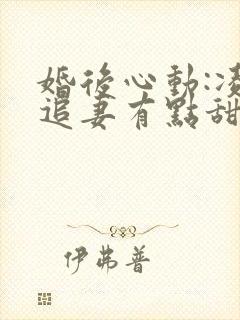 婚後心動:凌
追妻有點甜
伊弗普